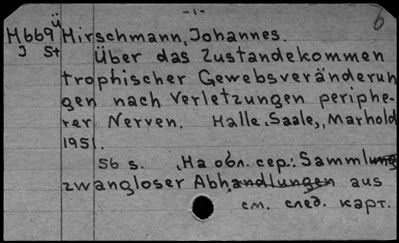 -1-
6
М669 ü Hirschmann, Johannes.
J St Über das Zustandekommen
trophischer Gewebsveränderun
gen nach Verletzungen periphe-
rer Nerven. Halle (Saale), Marhold
1951.
56 s. (На обл. сер.: Sammlung
zwangloser Abhandlungen aus
см. след. карт.